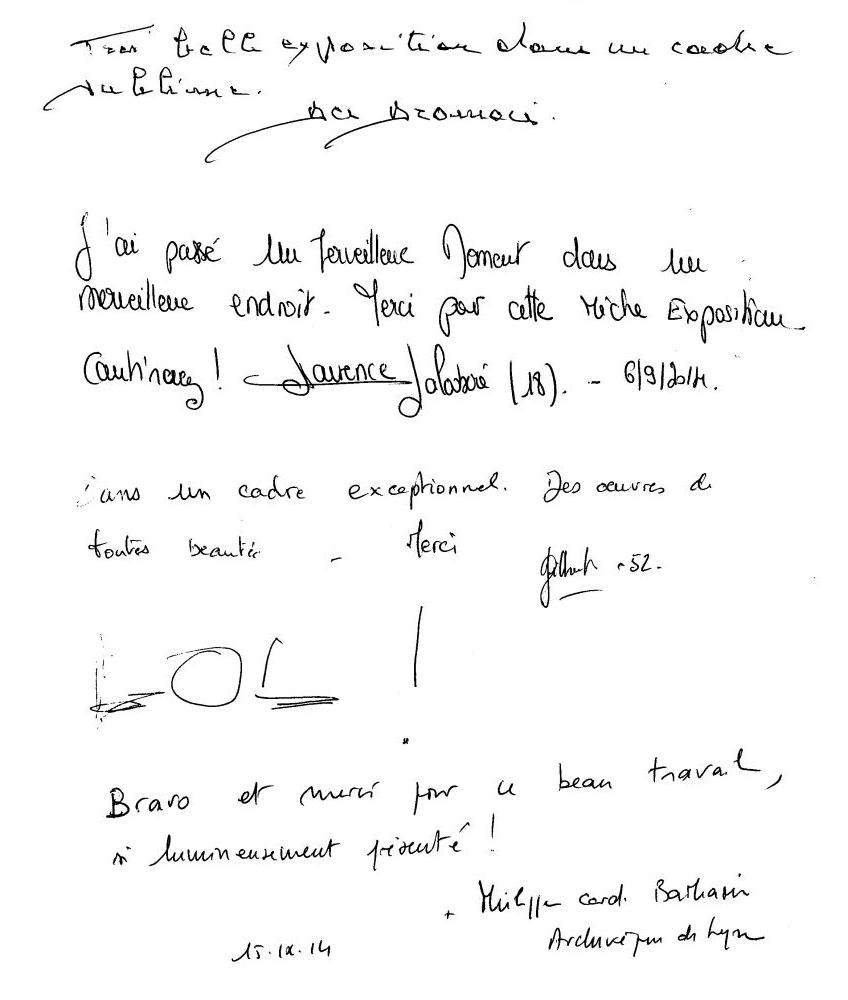 Très belle exposition dans un cadre
sublime.
J'ai passé un merveilleux Moment dans un
merveilleux endroit. Merci pour cette riche Exposition
Continuez ! Laurence (18). - 6/9/2014.
Dans un cadre exceptionnel. Des œuvres de
toutes beautés - Merci
52.
LOL !
Bravo et merci pour ce beau travail,
si lumineusement présenté !
+ Philippe card. Barbarin
Archevêque de Lyon
15.IX.14